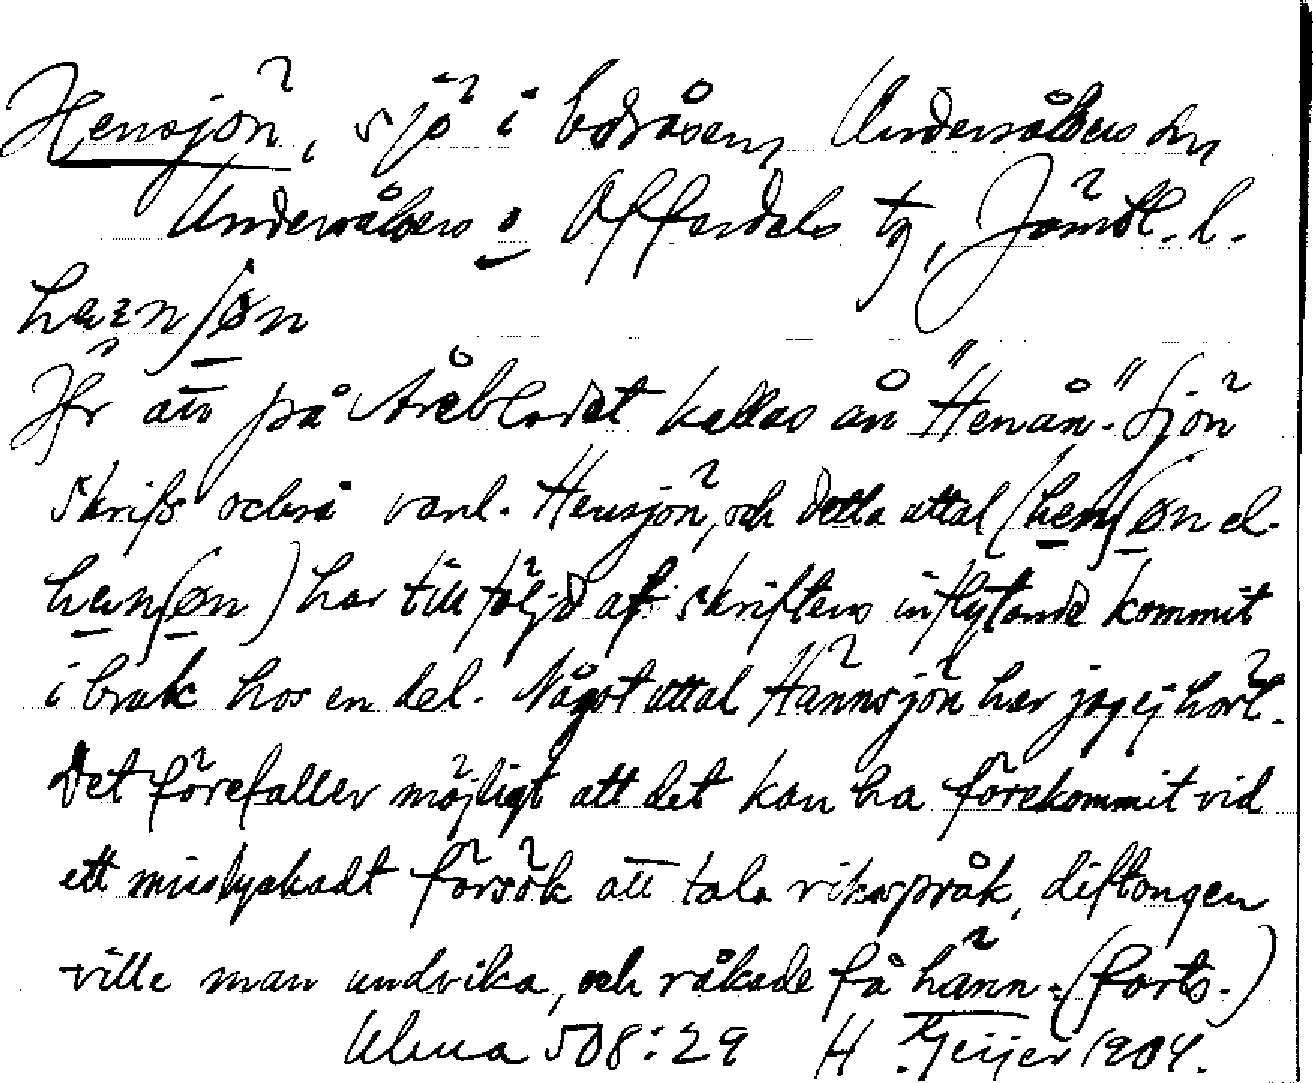 Hensjön, sjö i bolråsen, Undersåkers sn
Undersåkers o Offerdals tg, Jämtl. l.
hæɪnʃøn
Jfr att på Årebladet kallas ån "Henån". Sjön
skrifs också vanl. Hensjön, och detta uttal (henʃøn el.
hænʃøn) har till följd af skriftens inflytande kommit
i bruk hos en del. Något uttal Hännsjön har jag ej hört.
Det förefaller möjligt att det kan ha förekommit vid
ett misslyckadt försök att tala riksspråk, diftongen
ville man undvika, och råkade få hänn. (forts.)
Ulma 508:29 H Geijer 1904.